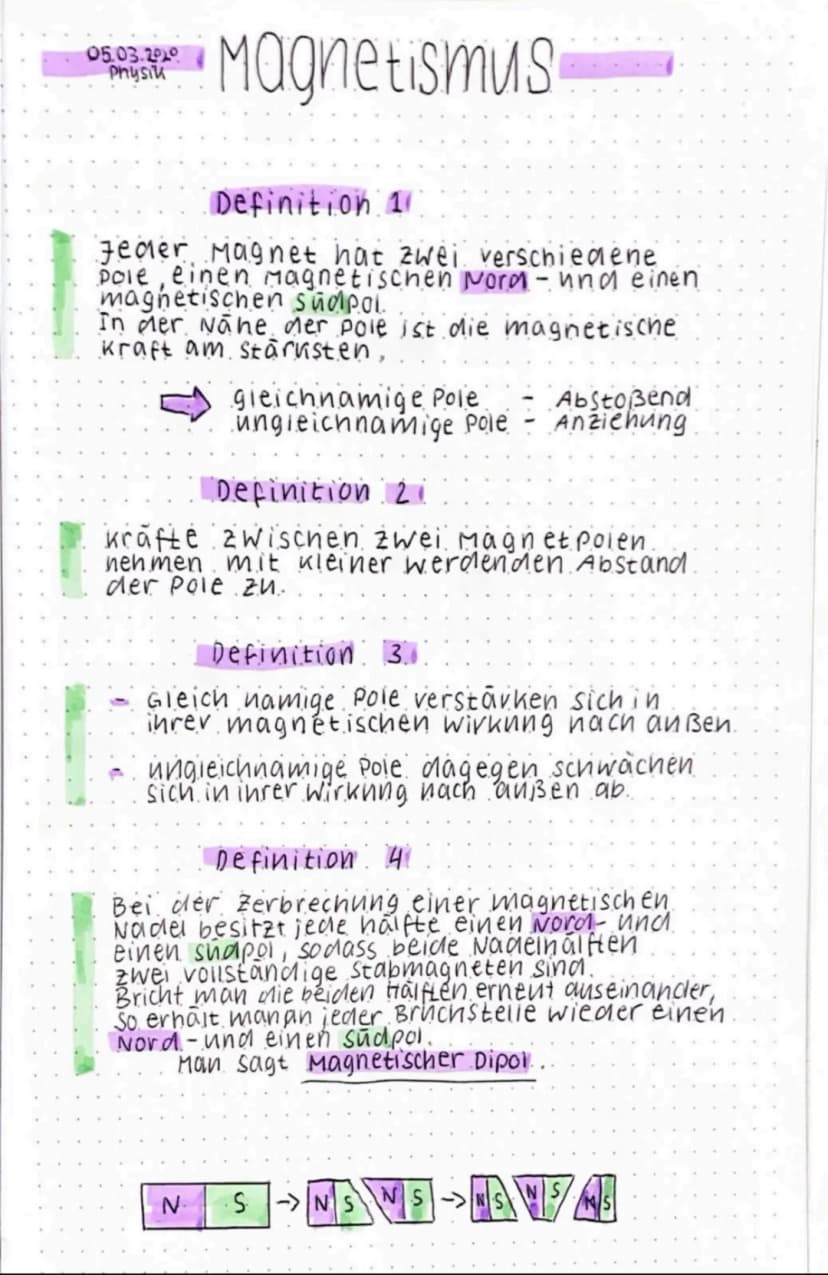 05.03.2020
Physik
Magnetismus
Definition 1
Jeder Magnet hat zwei verschiedene
Pole, einen magnetischen Nord- und einen
magnetischen Südpol.
In der Nähe der Pole ist die magnetische
Kraft am stärksten.
gleichnamige Pole - Abstoßend
ungleichnamige Pole - Anziehung
Definition 2
Kräfte zwischen zwei Magnetpolen
nehmen mit kleiner werdenden Abstand
der Pole zu.
Definition 3
- Gleich namige Pole verstärken sich in
ihrer magnetischen Wirkung nach außen
- ungleichnamige Pole dagegen schwächen
sich in ihrer Wirkung nach außen ab.
Definition 4
Bei der Zerbrechung einer magnetischen
Nadel besitzt jede hälfte einen Nord- und
einen Südpol, sodass beide Nadelhälften
zwei vollständige Stabmagneten sind.
Bricht man die beiden Hälften erneut auseinander,
so erhält man an jeder Bruchstelle wieder einen
Nord- und einen Südpol.
Man sagt Magnetischer Dipol.
N S → N S N S → N S N S N S